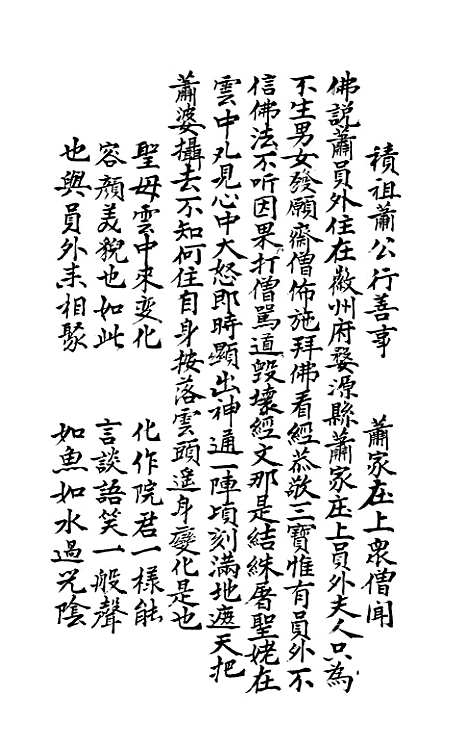 積祖蕭公行善事　蕭家庄上衆僧聞
佛説蕭員外住在徽州府婺源縣蕭家庄上員外夫人只為
不生男女發願齋僧佈施拜佛看經恭敬三寶惟有員外不
信佛法不听因果打僧駡道毀壞經文那是結綵屠聖姥在
雲中丸見心中大怒即時顯出神通一陣頃刻滿地遮天把
蕭婆攝去不知何住自身按落雲頭遥身變化是也
聖母雲中來变化　化作院君一様能
容顔美貌也如此　言談語笑一般聲
也與員外来相聚　如魚如水過光陰